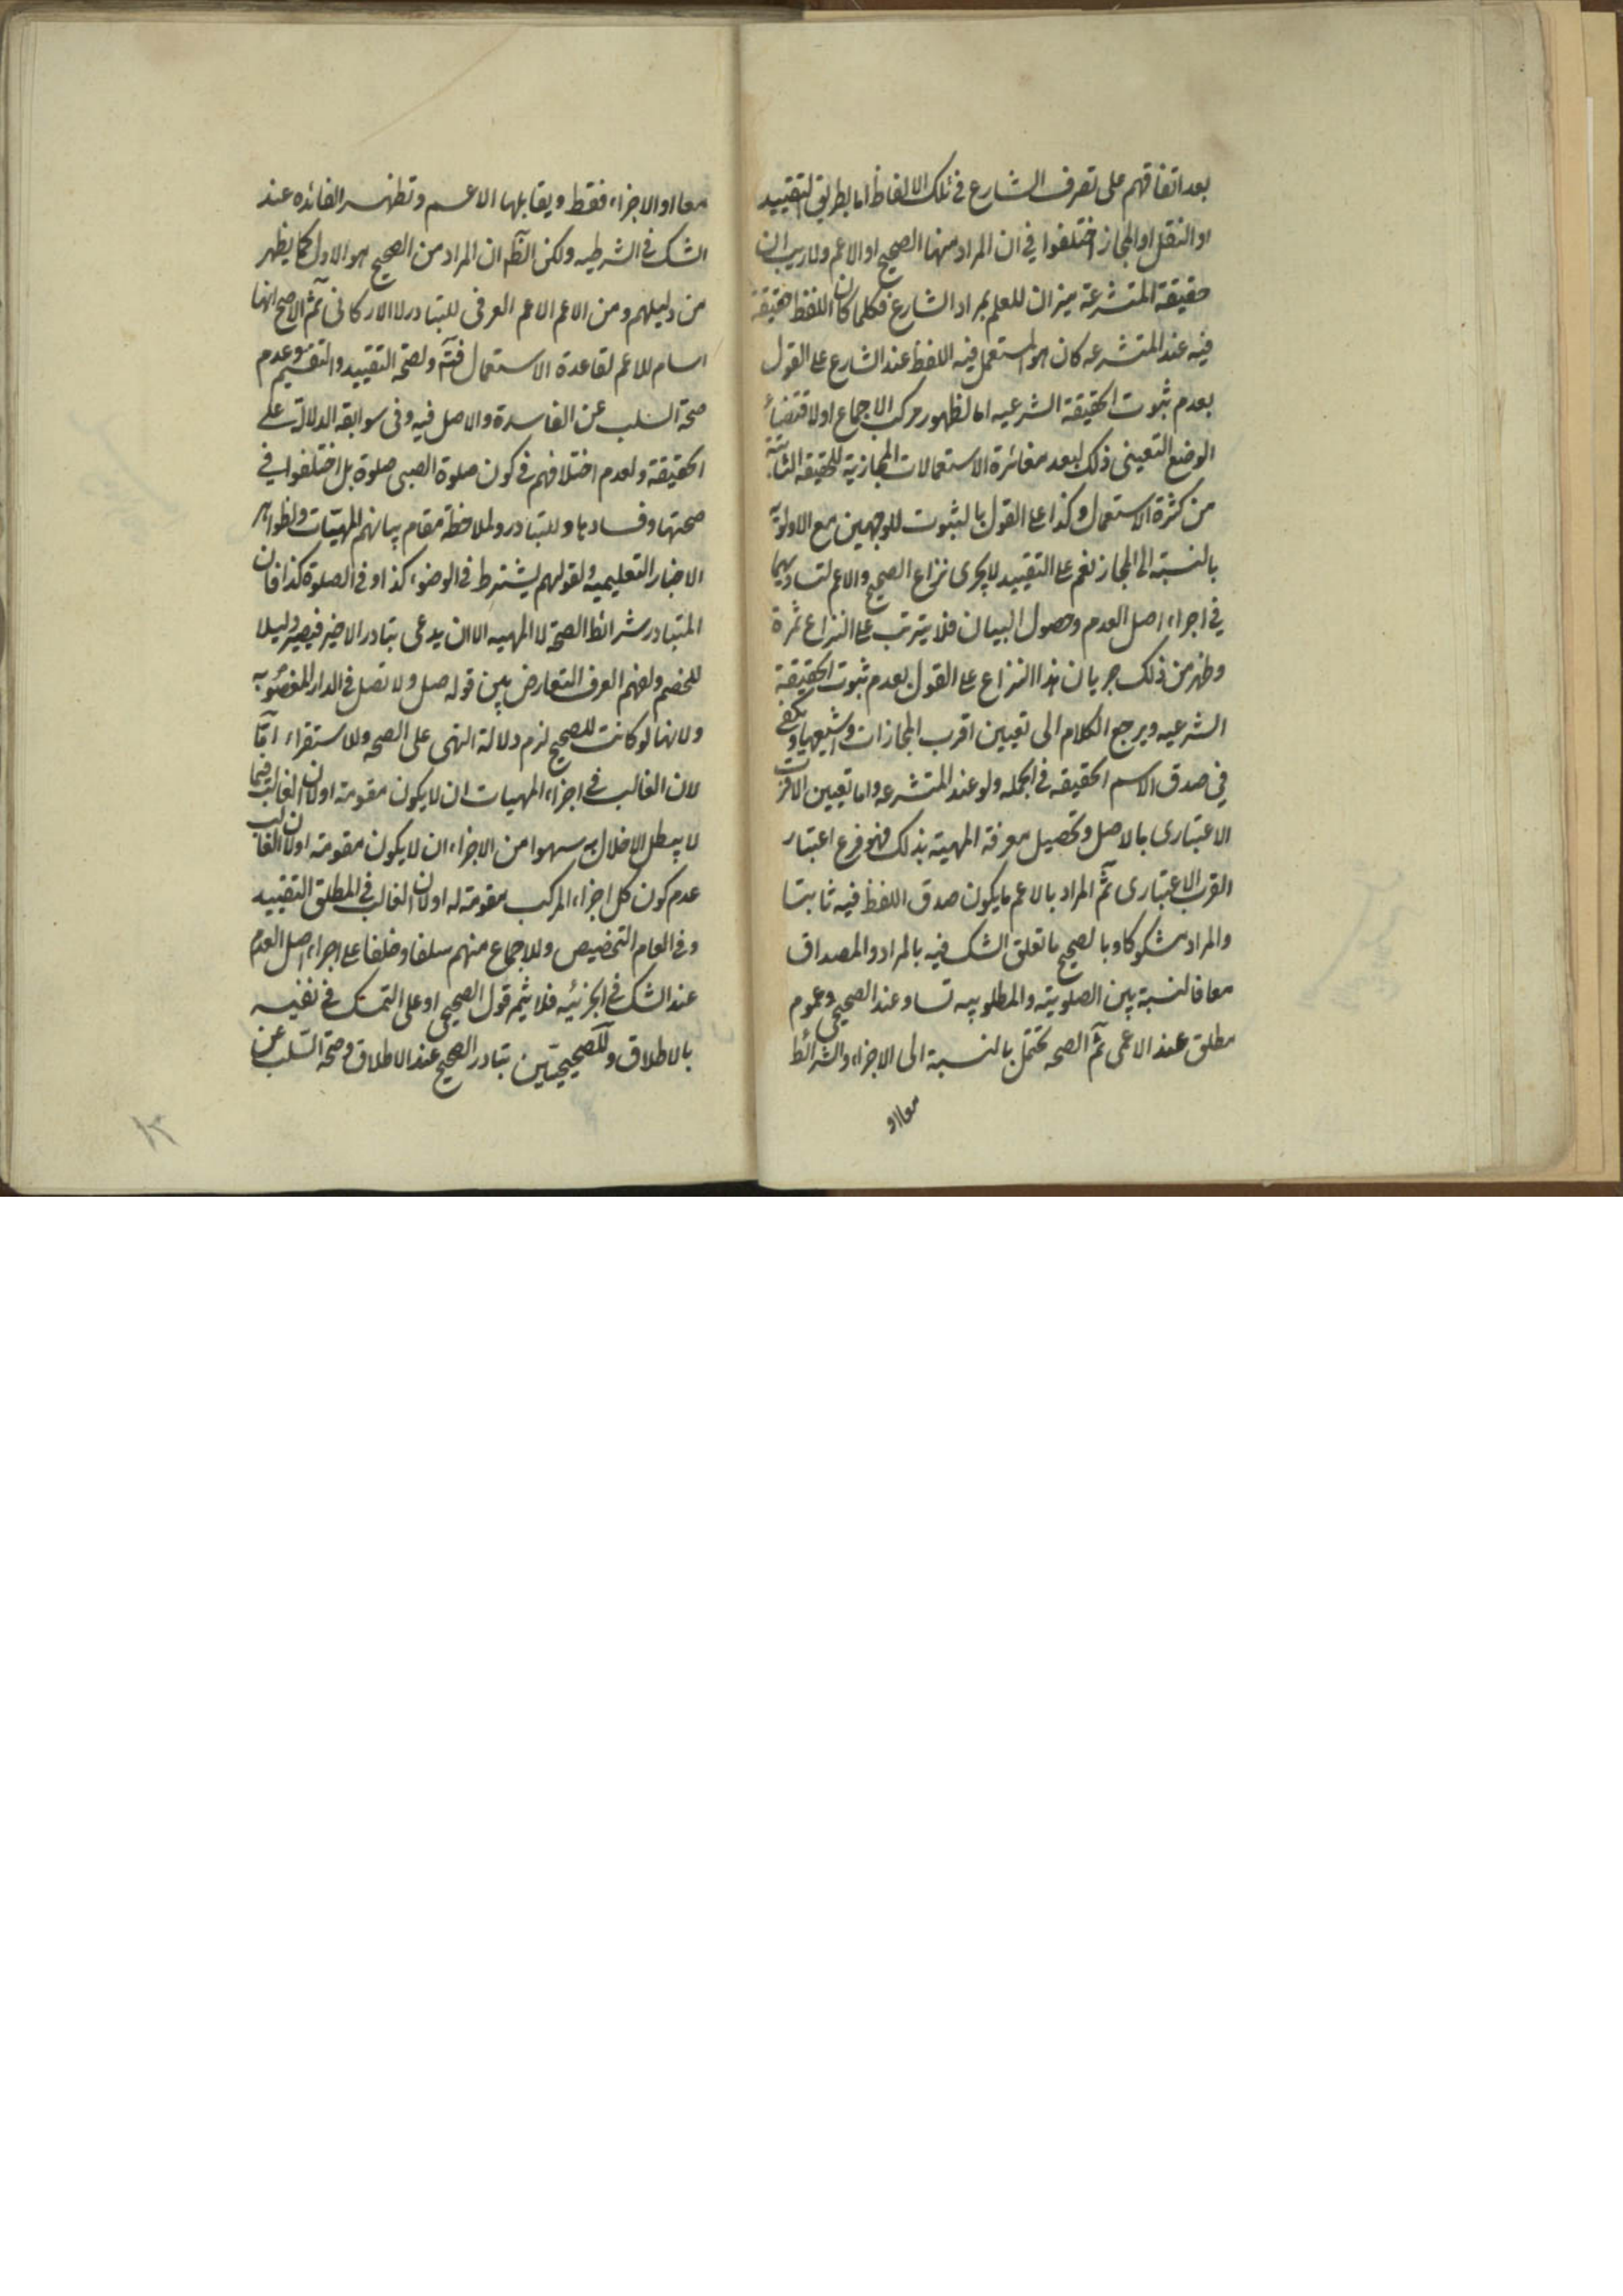 بعد اتفاقهم على تصرف الشارع فى تلك الالفاظ اما بطريق التقييد
او النقل او المجاز اختلفوا فى ان المراد منها الصحيح او الاعم ولا ريب ان
حقيقة المتشرعة ميزان للعلم بمراد الشارع فكلما كان اللفظ حقيقة
فيه عند المتشرعه كان هو المستعمل فيه اللفظ عند الشارع على القول
بعدم ثبوت الحقيقة الشرعيه اما لظهور مركب الاجماع او لاقتضاء
الوضع التعينى ذلك لبعد مغائرة الاستعمالات المجازية للحقيقة الثابتة
من كثرة الاستعمال وكذا على القول بالثبوت للوجهين مع الاولوية
بالنسبة الى المجاز نعم على التقييد لا يجرى نزاع الصحيح والاعم لتساويهما
فى اجراء اصل العدم وحصول البيان فلا يترتب على النزاع ثمرة
وظهر من ذلك جريان هذا النزاع على القول بعدم ثبوت الحقيقة
الشرعيه ويرجع الكلام الى تعيين اقرب المجازات واشيعها ويكفى
فى صدق الاسم الحقيقه فى الجمله ولو عند المتشرعه واما تعيين الاقرب
الاعتبارى بالاصل وتحصيل معرفة المهية بذلك فهو فرع اعتبار
القرب الاعتبارى ثم المراد بالاعم ما يكون صدق اللفظ فيه ثابتا
والمراد مشكوكا وبالصحيح ما تعلق الشك فيه بالمراد والمصداق
معا فالنسبة بين الصلوتية والمطلوبيه تساو عند الصحيحى وعموم
مطلق عند الاعمى ثم الصحه تحتمل بالنسبة الى الاجزاء والشرائط
معا او
معا او الاجزاء فقط ويقابلها الاعم وتظهر الفائده عند
الشك فى الشرطيه ولكن الظ ان المراد من الصحيح هو الاول كما يظهر
من دليلهم ومن الاعم الاعم العرفى للتبادر لا الاركانى ثم الاصح انها
اسام للاعم لقاعدة الاستعمال ولصحة التقييد والتقسيم وعدم
صحة السلب عن الفاسدة والاصل فيه وفى سوابقه الدلالة على
الحقيقة ولعدم اختلافهم فى كون صلوة الصبى صلوة بل اختلفوا فى
صحتها وفسادها وللتبادر ولملاحظة مقام بيانهم للمهيات ولظواهر
الاخبار التعليميه ولقولهم يشترط فى الوضوء كذا وفى الصلوة كذا فان
المتبادر شرائط الصحة لا المهيه الا ان يدعى تبادر الاخير فيصير دليلا
للخصم ولفهم العرف التعارض بين قوله صل ولا تصل فى الدار المغصوبه
ولانها لو كانت للصحيح لزم دلالة النهى على الصحه وللاستقراء اما
لان الغالب فى اجزاء المهيات ان لا يكون مقومة او لان الغالب فيما
لا يبطل الاخلال به سهوا من الاجزاء ان لا يكون مقومة او لان الغالب
عدم كون كل اجزاء المركب مقومة له او لان الغالب فى المطلق التقييد
وفى العام التخصيص وللاجماع منهم سلفا وخلفا على اجراء اصل العدم
عند الشك فى الجزئيه فلا يتم قول الصحيحى او على التمسك فى نفيه
بالاطلاق وللصحيحيين تبادر الصحيح عند الاطلاق وصحة السلب عن